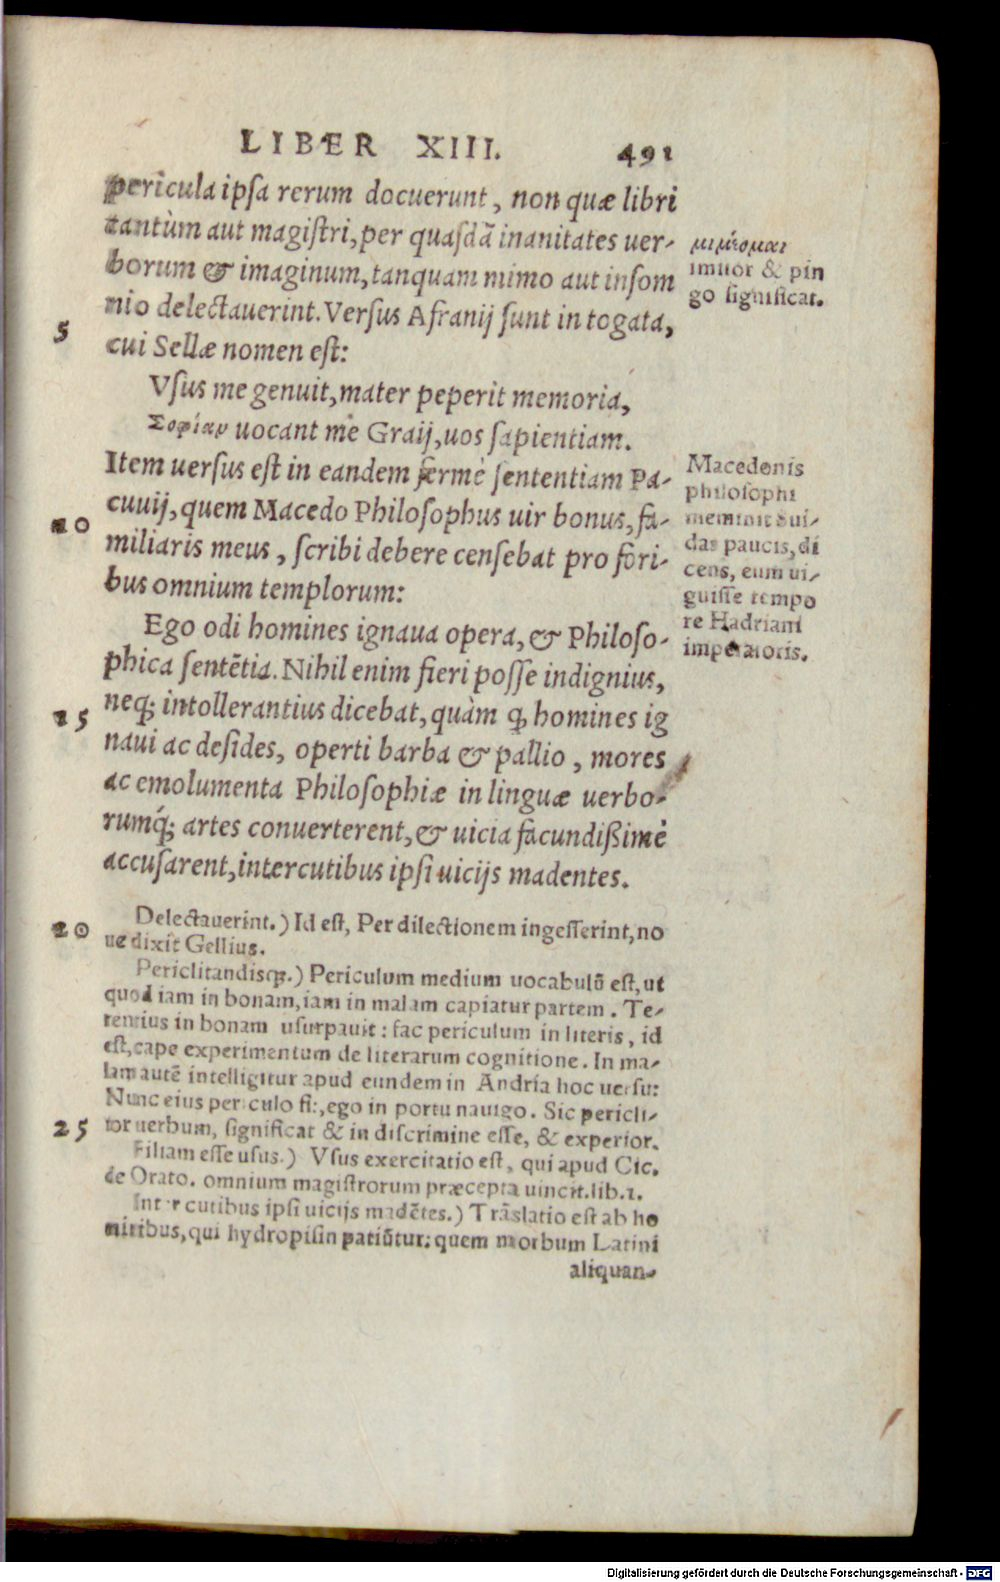 LIBER XIII. 491
pericula ipsa rerum docuerunt, non quæ libri
tantùm aut magistri, per quasdã inanitates uer-
borum & imaginum, tanquam mimo aut insom
nio delectauerint. Versus Afranij sunt in togata,
5
cui Sellæ nomen est:
Vsus me genuit, mater peperit memoria,
Σοφίαν uocant me Graij, uos sapientiam.
Item uersus est in eandem fermè sententiam Pa-
cuuij, quem Macedo Philosophus uir bonus, fa-
10
miliaris meus, scribi debere censebat pro fori-
bus omnium templorum:
Ego odi homines ignaua opera, & Philoso-
phica sentẽtia. Nihil enim fieri posse indignius,
neq; intollerantius dicebat, quàm q homines ig
15
naui ac desides, operti barba & pallio, mores
ac emolumenta Philosophiæ in linguæ uerbo-
rumq́; artes conuerterent, & uicia facundißimè
accusarent, intercutibus ipsi uicijs madentes.
μιμέομαι
imitor & pin
go significat.
Macedonis
philosophi
meminit Sui-
das paucis, di
cens, eum ui-
guisse tempo
re Hadriani
imperatoris.
Delectauerint.) Id est, Per dilectionem ingesserint, no
20
ue dixit Gellius.
Periclitandisq;.) Periculum medium uocabulũ est, ut
quod iam in bonam, iam in malam capiatur partem. Te-
rentius in bonam usurpauit: fac periculum in literis, id
est, cape experimentum de literarum cognitione. In ma-
lam autẽ intelligitur apud eundem in Andria hoc uersu:
Nunc eius periculo fit, ego in portu nauigo. Sic pericli-
25
tor uerbum, significat & in discrimine esse, & experior.
Filiam esse usus.) Vsus exercitatio est, qui apud Cic.
de Orato. omnium magistrorum præcepta uincit. lib.1.
Intercutibus ipsi uicijs madẽtes.) Trãslatio est ab ho
minibus, qui hydropisin patiũtur: quem morbum Latini
aliquan-
Digitalisierung gefördert durch die Deutsche Forschungsgemeinschaft - DFG